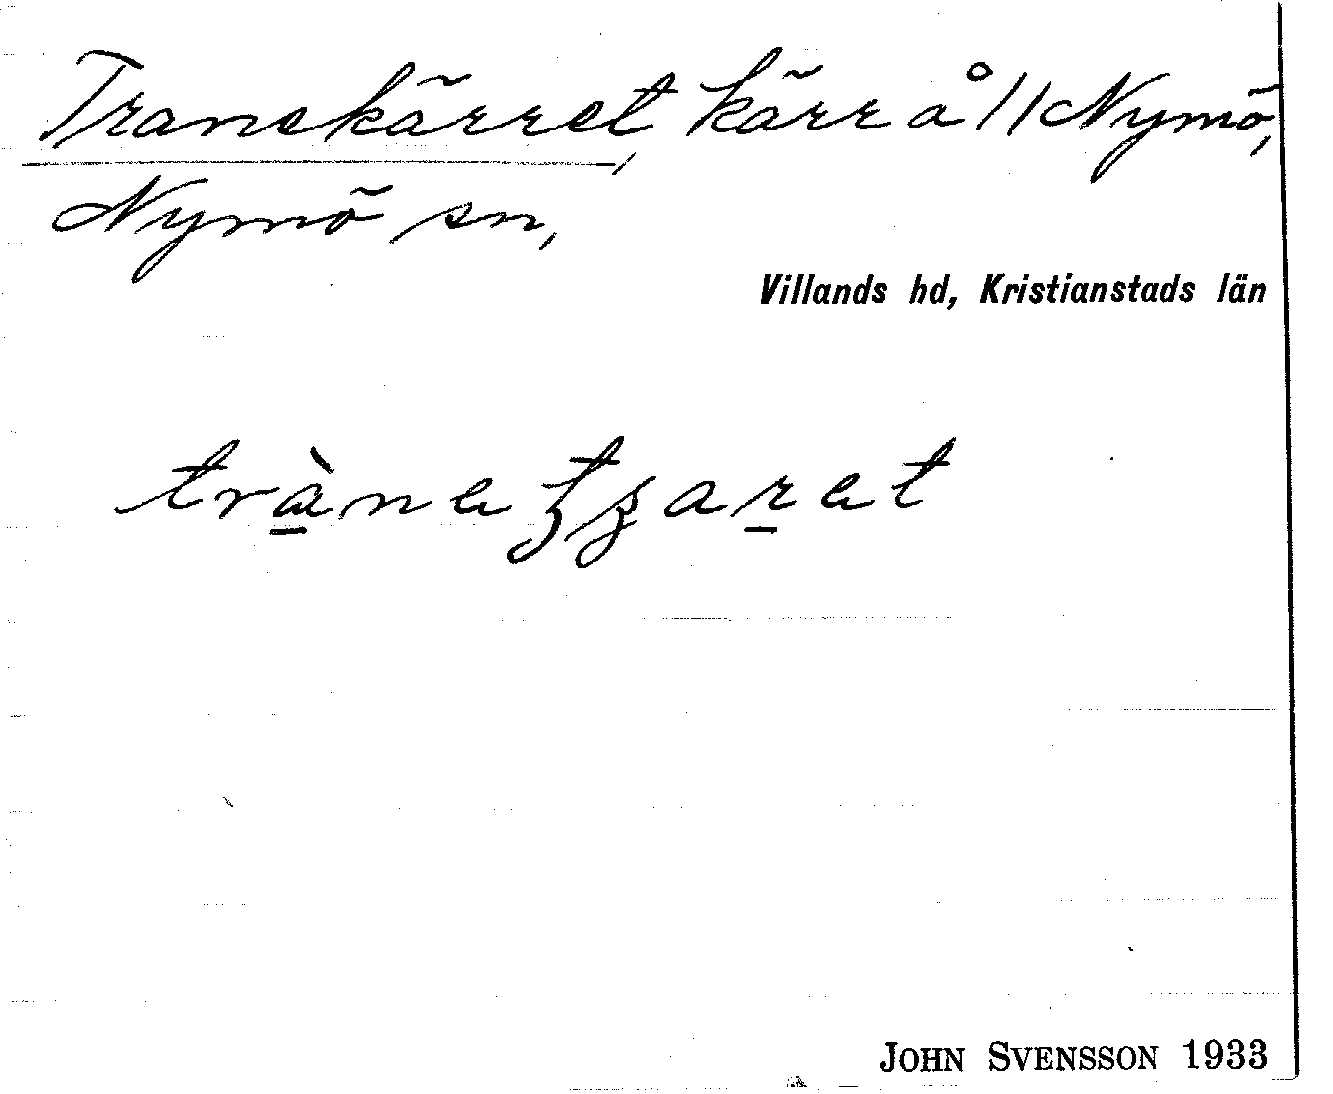 Tranekärret, kärr å // Nymö,
Nymö sn,
Villands hd, Kristianstads län
tràneꞎʓaret
JOHN SVENSSON 1933